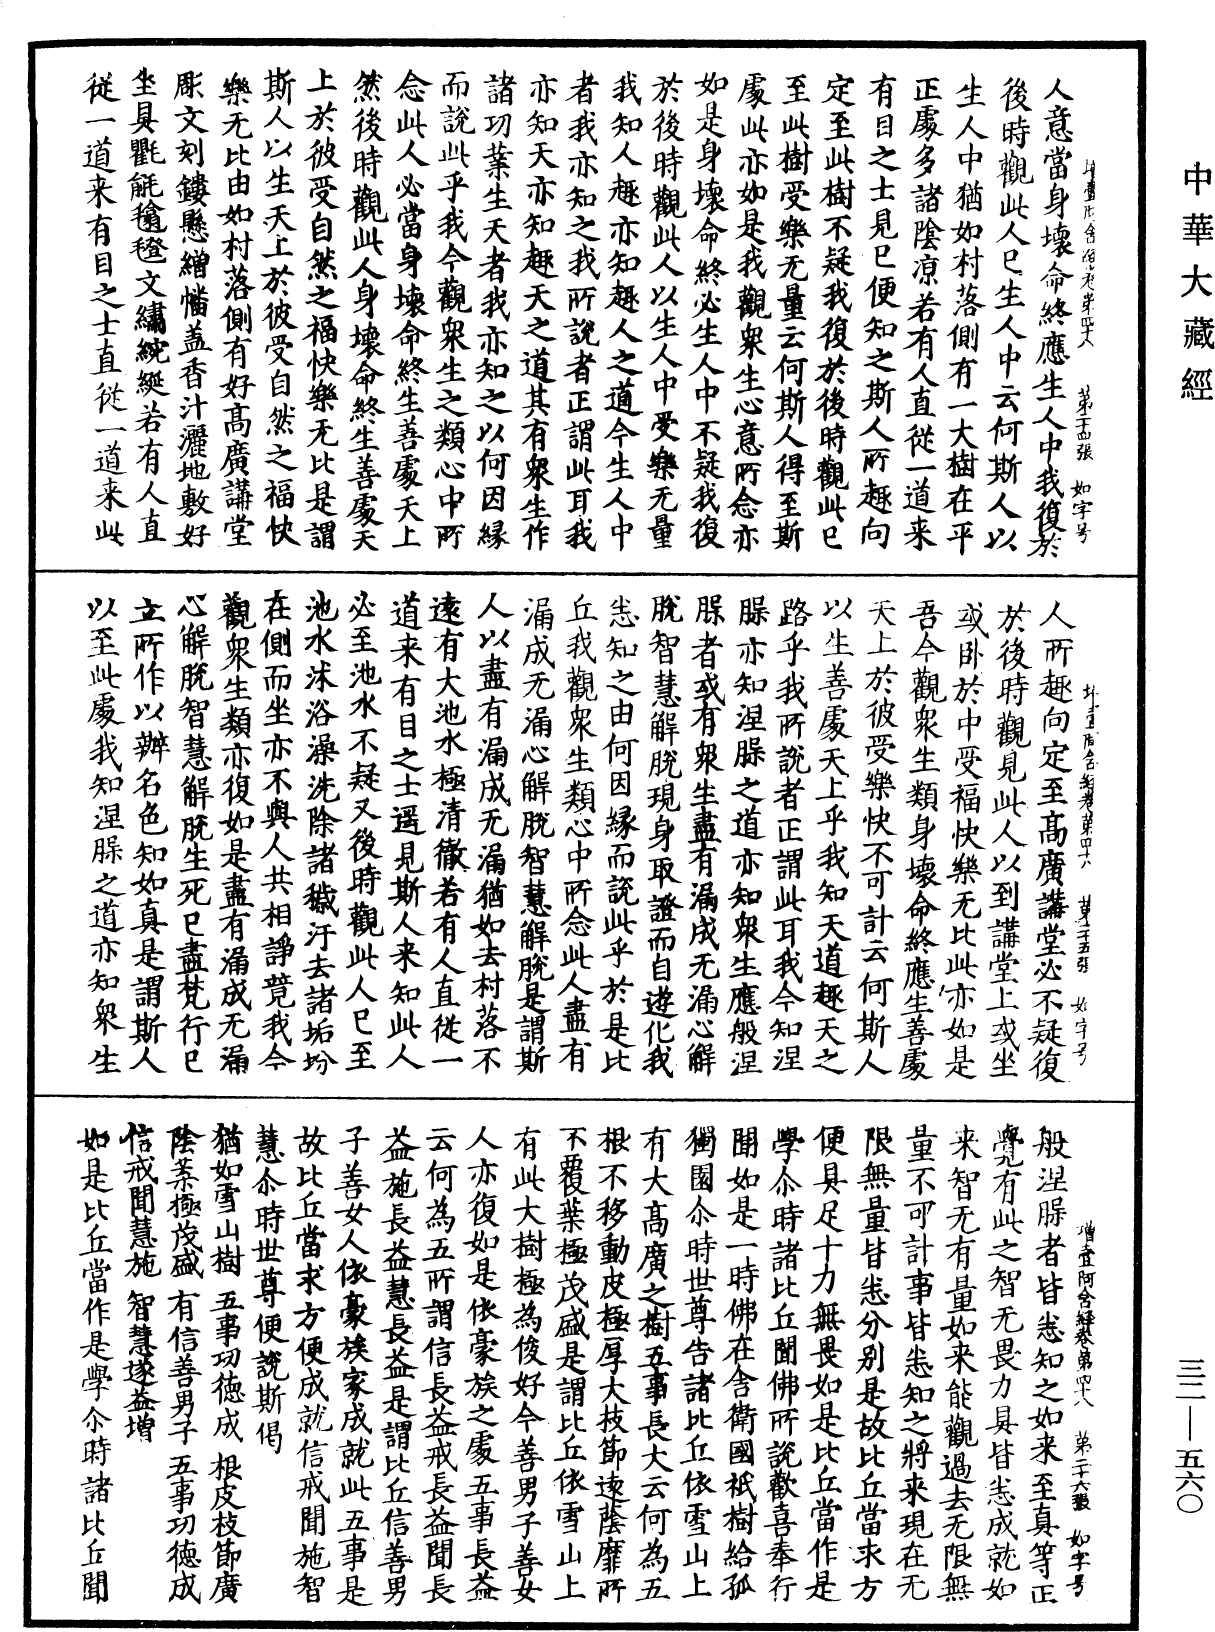 中華大藏經
人意當身壞命終應生人中我復於
後時觀此人已生人中云何斯人以
生人中猶如村落側有一大樹在平
正處多諸陰涼若有人直從一道来
有目之士見已便知之斯人所趣向
定至此樹不疑我復於後時觀此已
至此樹受樂无量云何斯人得至斯
處此亦如是我觀衆生心意所念亦
如是身壞命終必生人中不疑我復
於後時觀此人以生人中受樂无量
我知人趣亦知趣人之道今生人中
者我亦知之我所說者正謂此耳我
亦知天亦知趣天之道其有衆生作
諸功業生天者我亦知之以何因緣
而說此乎我今觀衆生之類心中所
念此人必當身壞命終生善處天上
然後時觀此人身壞命終生善處天
上於彼受自然之福快樂无比是謂
斯人以生天上於彼受自然之福快
樂无比由如村落側有好高廣講堂
彫文刻鏤懸繒幡蓋香汁灑地敷好
坐具氍毹毾㲪文繡綩綖若有人直
從一道来有目之士直從一道来此
增壹阿含經卷第四十八　第二十四張　如字号
人所趣向定至高廣講堂必不疑復
於後時觀見此人以到講堂上或坐
或卧於中受福快樂无比此亦如是
吾今觀衆生類身壞命終應生善處
天上於彼受樂快不可計云何斯人
以生善處天上乎我知天道趣天之
路乎我所說者正謂此耳我今知涅
䏶亦知涅䏶之道亦知衆生應般涅
䏶者或有衆生盡有漏成无漏心解
脫智慧解脫現身取證而自遊化我
悉知之由何因緣而說此乎於是比
丘我觀衆生類心中所念此人盡有
漏成无漏心解脫智慧解脫是謂斯
人以盡有漏成无漏猶如去村落不
遠有大池水極清徹若有人直從一
道来有目之士遥見斯人来知此人
必至池水不疑又後時觀此人已至
池水沐浴澡洗除諸穢汙去諸垢坋
在側而坐亦不與人共相諍競我今
觀衆生類亦復如是盡有漏成无漏
心解脫智慧解脫生死已盡梵行已
立所作以辦名色知如真是謂斯人
以至此處我知涅䏶之道亦知衆生
增壹阿含經卷第四十八　第二十五張　如字号
般涅䏶者皆悉知之如来至真等正
覺有此之智无畏力具皆悉成就如
来智无有量如来能觀過去无限無
量不可計事皆悉知之將来現在无
限無量皆悉分别是故比丘當求方
便具足十力無畏如是比丘當作是
學尒時諸比丘聞佛所說歡喜奉行
聞如是一時佛在舍衛國祇樹給孤
獨園尒時世尊告諸比丘依雪山上
有大高廣之樹五事長大云何為五
根不移動皮極厚大枝節遠蔭靡所
不覆葉極茂盛是謂比丘依雪山上
有此大樹極為俊好今善男子善女
人亦復如是依豪族之處五事長益
云何為五所謂信長益戒長益聞長
益施長益慧長益是謂比丘信善男
子善女人依豪族家成就此五事是
故比丘當求方便成就信戒聞施智
慧尒時世尊便說斯偈
猶如雪山樹　五事功德成　根皮枝節廣
陰葉極茂盛　有信善男子　五事功德成
信戒聞慧施　智慧遂益增
如是比丘當作是學尒時諸比丘聞
增壹阿含經卷第四十八　第二十六張　如字号
三二—五六〇